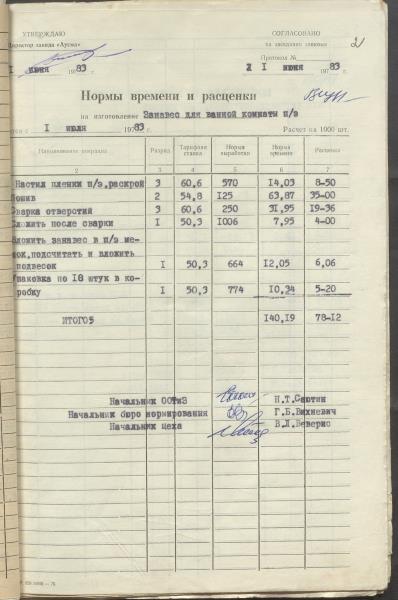 УТВЕРЖДАЮ
Директор завода «Аусма»
I июня 1983 г.
СОГЛАСОВАНО
на заседании завкома
Протокол №
I июня 1983 г.
2
Нормы времени и расценки
на изготовление Занавес для ванной комнаты п/э
с I июля 1983 г. Расчет на 1000 шт.
Наименование операции Разряд Тарифная ставка Норма выработки Норма времени Расценка
2 3 4 5 6 7
Настил пленки п/э,раскрой 3 60,6 570 14,03 8-50
2 54,8 125 63,87 35-00
Сварка отверстий 3 60,6 250 31,95 19-36
Сложить после сварки I 50,3 1006 7,95 4-00
Вложить занавес в п/э ме-
шок,подсчитать и вложить
подвесок I 50,3 664 12,05 6,06
Упаковка по 10 штук в ко-
робку I 50,3 774 10,34 5-20
ИТОГО: 140,19 78-12
Начальник ООТиЗ Н.Т.Саютин
Начальник бюро нормирования Г.Б.Вихневич
Начальник цеха В.Л.Веверис